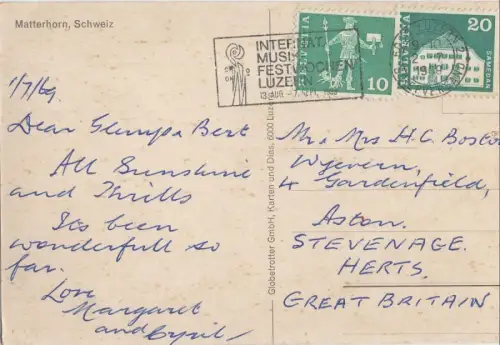 Matterhorn, Schweiz
1/7/69
Dear Glenys & Bert
All Sunshine
and Thrills
Its been
wonderfull so
far.
Love
Margaret
and Cyril
Globetrotter GmbH, Karten und Dias, 6000 Luzern
INTERNAT.
MUSIK
FESTWOCHEN
LUZERN
13. AUG. - 7. SEPT.
HELVETIA
10
HELVETIA
20
SARNEN
Mr. Mrs H.C. Boston
Wyevern,
4 Gardenfield,
Aston.
STEVENAGE.
HERTS.
GREAT BRITAIN